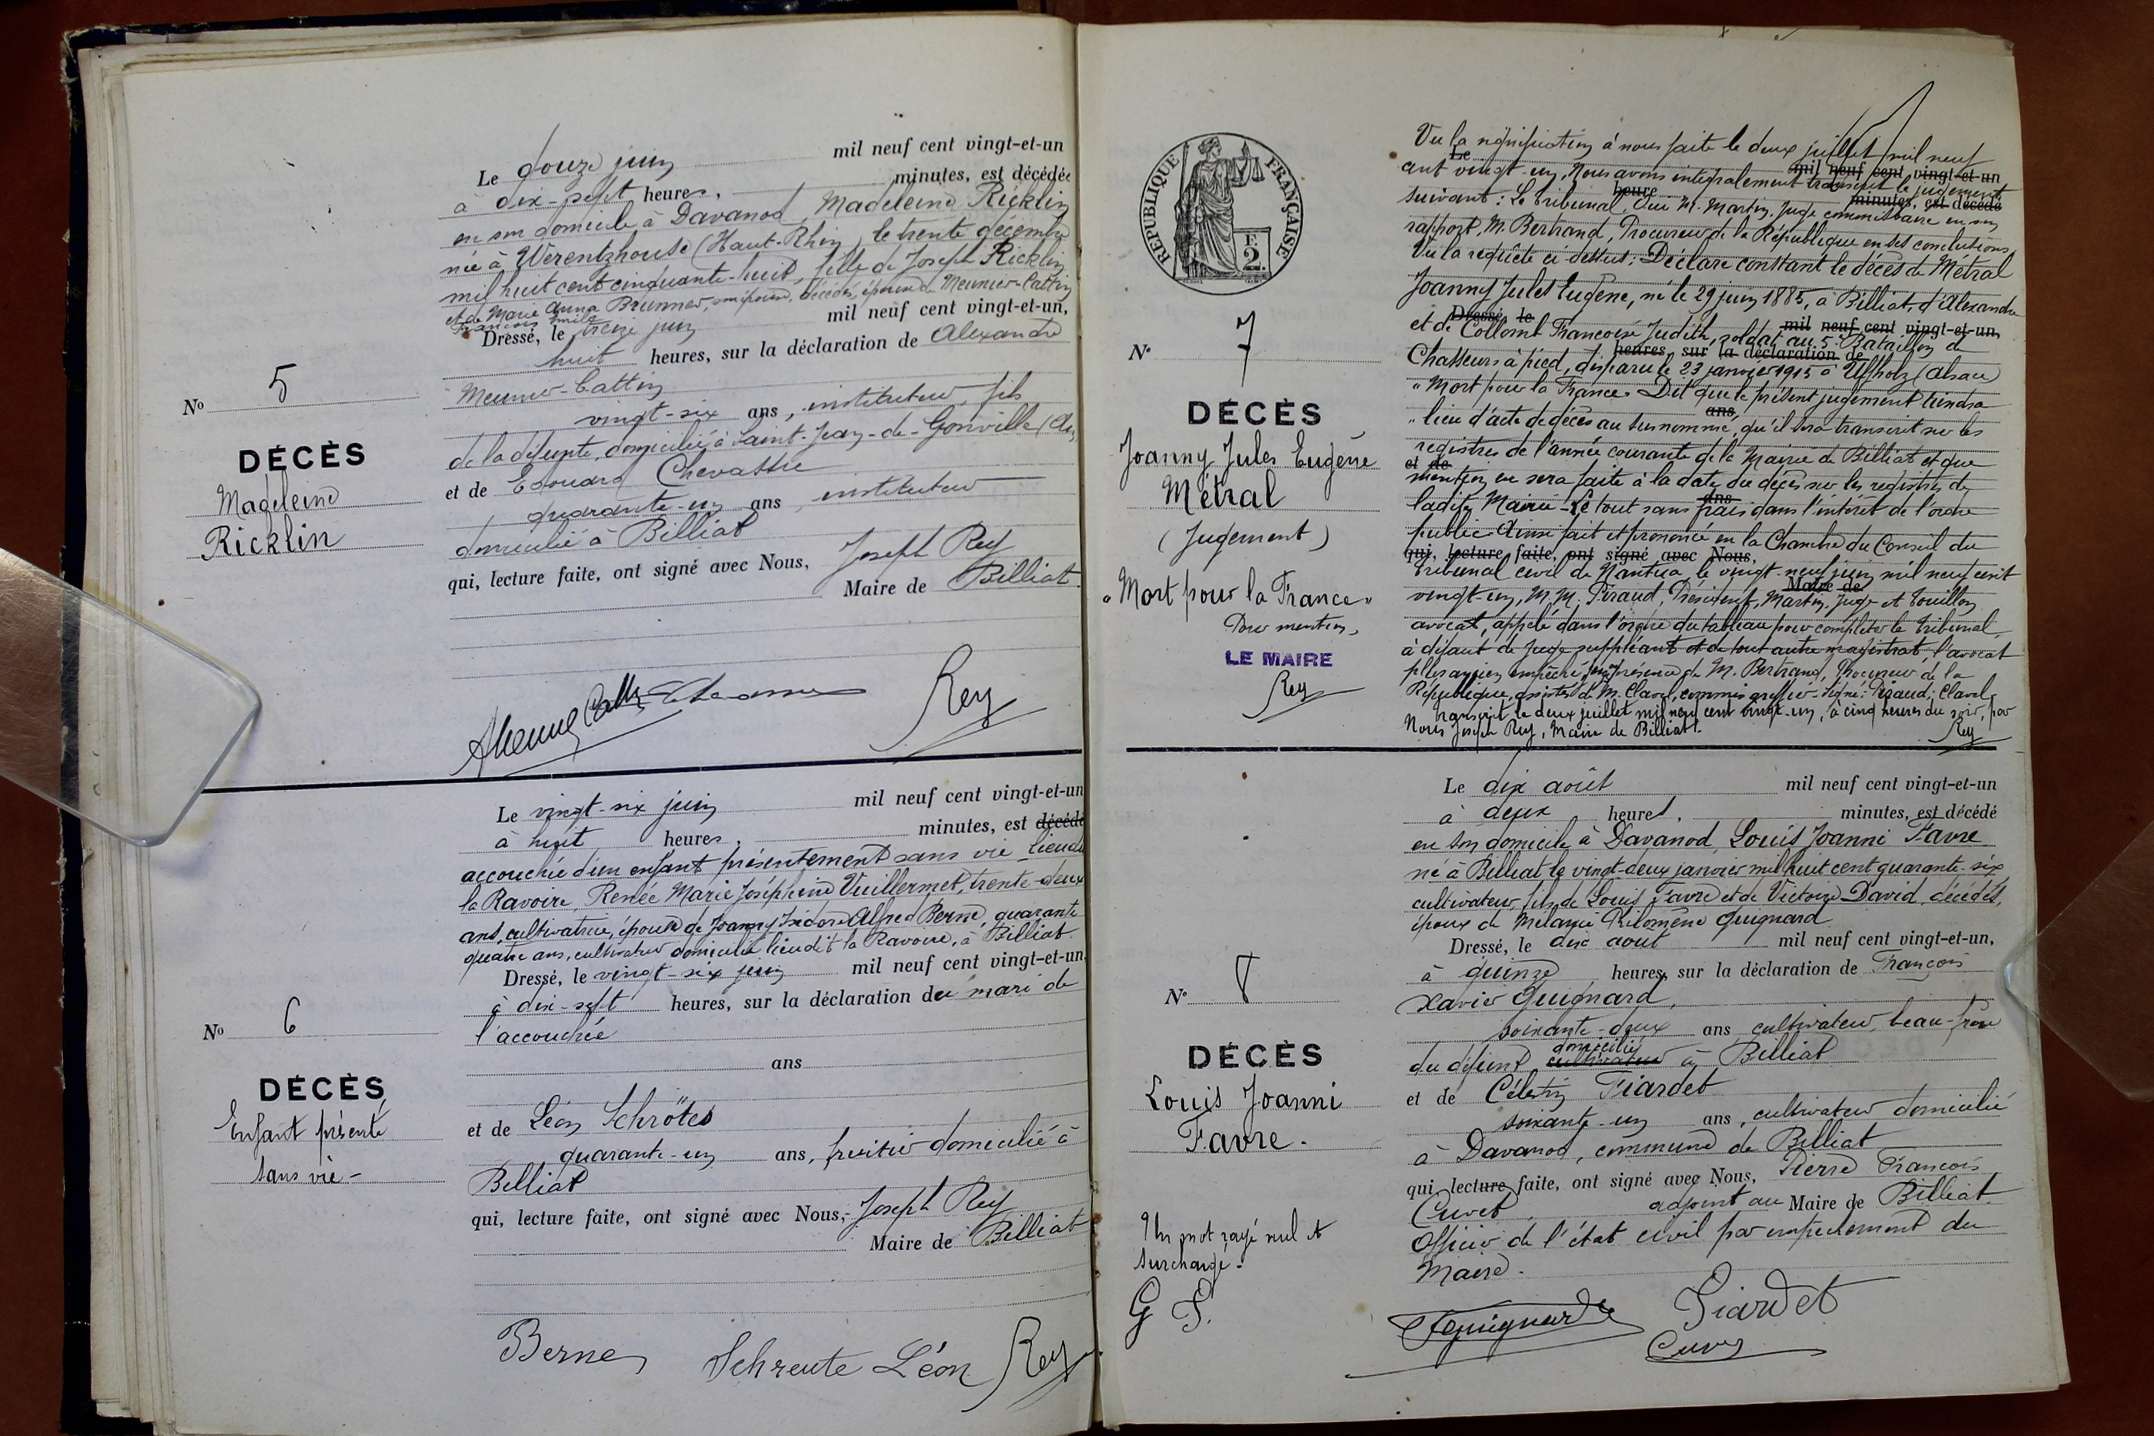 Le douze juin mil neuf cent vingt-et-un
à dix-sept heures, minutes, est décédée
en son domicile à Davanod, Madeleine Ricklin
née à Werentzhouse (Haut-Rhin, le trente décembre
mil huit cent cinquante-huit, fille de Joseph Ricklin
et de Marie Anna Brunner, décédés, épouse de Meunier-Cattin
François Emile
Dressé, le treize juin mil neuf cent vingt-et-un,
huit heures, sur la déclaration de Alexandre
Meunier-Cattin
vingt-six ans, instituteur, fils
de la défunte, domicilié à Saint-Jean-de-Gonville (Ain
et de Edouard Chevassu
quarante-un ans, instituteur
domicilié à Billiat
qui, lecture faite, ont signé avec Nous, Joseph Rey
Maire de Billiat.
No 5
DÉCÈS
Madeleine
Ricklin
Rey
Le vingt-six juin mil neuf cent vingt-et-un
à huit heures, minutes, est décédé
accouchée d'un enfant présentement sans vie lieudit
la Ravoire, Renée Marie Joséphine Vuillermet, trente-deux
ans, cultivatrice, épouse de Joanny Isidore Alfred Berne, quarante
quatre ans, cultivateur domicilié lieudit la Ravoire, à Billiat.
Dressé, le vingt-six juin mil neuf cent vingt-et-un
à dix-sept heures, sur la déclaration du mari de
l'accouchée
ans
et de Léon Schrötes
quarante-un ans, fruitier domicilié à
Billiat
qui, lecture faite, ont signé avec Nous, Joseph Rey
Maire de Billiat
No 6
DÉCÈS
Enfant présenté
sans vie -
Berne Schreute Léon Rey
RÉPUBLIQUE FRANÇAISE
F.
2
No 7
DÉCÈS
Joanny Jules Eugène
Métral
(Jugement)
"Mort pour la France"
Pour mention,
LE MAIRE
Rey
Vu la signification à nous faite le deux juillet mil neuf
Le mil neuf cent vingt-et-un
cent vingt-un, Nous avons intégralement transcrit le jugement
heure minutes, est décédé
suivant : Le Tribunal, Oui M. Martin, Juge commissaire en son
rapport, M. Bertrand, Procureur de la République en ses conclusions,
Vu la requête ci-dessus : Déclare constant le décès de Métral
Joanny Jules Eugène, né le 29 juin 1885, à Billiat, d'Alexandre
Dressé, le mil neuf cent vingt-et-un,
et de Collomb Françoise Judith, soldat au 5e Bataillon de
heures, sur la déclaration de
Chasseurs à pied, disparu le 23 janvier 1915 à Uffholz (Alsace)
"Mort pour la France. Dit que le présent jugement tiendra
ans,
lieu d'acte de décès au susnommé, qu'il sera transcrit sur les
registres de l'année courante de la Mairie de Billiat et que
et de
mention en sera faite à la date du décès sur les registres de
ans
ladite Mairie - Le tout sans frais dans l'intérêt de l'ordre
public. Ainsi fait et prononcé en la Chambre du Conseil du
qui, lecture faite, ont signé avec Nous,
Tribunal civil de Nantua, le vingt-neuf juin mil neuf cent
Maire de
vingt-un, M.M. Piraud, Président, Martin, Juge et Touillon
avocat, appelé dans l'ordre du tableau pour compléter le Tribunal,
à défaut de Juge suppléant et de tout autre magistrat, l'avocat
plus ancien empêché, en présence de M. Bertrand, Procureur de la
République, assistés de M. Clavel, commis greffier. Signé : Piraud, Clavel
Transcrit le deux juillet mil neuf cent vingt-un, à cinq heures du soir, par
Nous Joseph Rey, Maire de Billiat.
Rey
Le dix août mil neuf cent vingt-et-un
à deux heures, minutes, est décédé
en son domicile à Davanod, Louis Joanni Favre
né à Billiat le vingt-deux janvier mil huit cent quarante-six
cultivateur, fils de Louis Favre et de Victoire David, décédés,
époux de Mélanie Philomène Guignard
Dressé, le dix août mil neuf cent vingt-et-un,
à quinze heures, sur la déclaration de François
Xavier Guignard,
soixante-deux ans cultivateur, beau-frère
domicilié
du défunt cultivateur à Billiat
et de Célestin Tiardet
soixante-un ans, cultivateur domicilié
à Davanod, commune de Billiat
qui, lecture faite, ont signé avec Nous, Pierre François
Cuvet, adjoint au Maire de Billiat
Officier de l'état civil par empêchement du
Maire.
No 8
DÉCÈS
Louis Joanni
Favre.
Un mot rayé nul et
surchargé.
Tiardet